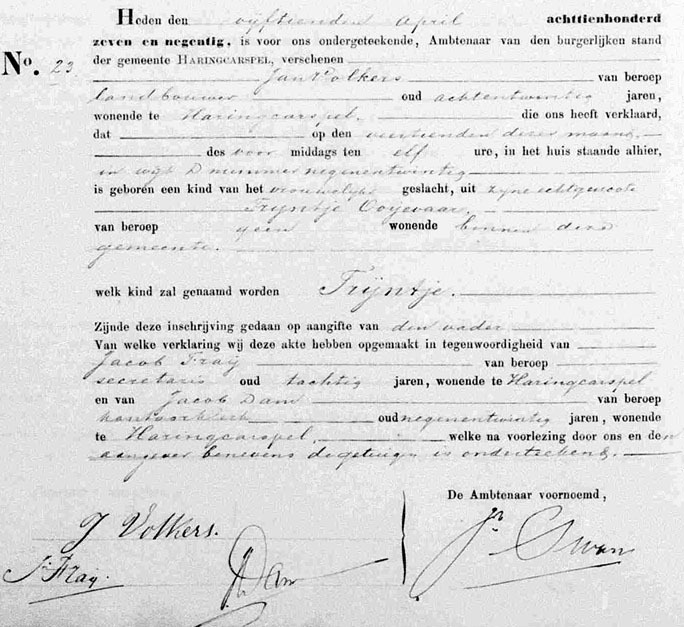 Heden den vijftienden April achttienhonderd
zeven en negentig, is voor ons ondergeteekende, Ambtenaar van den burgerlijken stand
No. 23 der gemeente HARINGCARSPEL, verschenen
Jan Volkers van beroep
landbouwer oud achtentwintig jaren,
wonende te Haringcarspel. die ons heeft verklaard,
dat op den veertienden dezer maand,
des voor middags ten elf ure, in het huis staande alhier,
in wijk D nummer negenentwintig
is geboren een kind van het vrouwelijke geslacht, uit zijne echtgenoote
Trijntje Ooyevaar,
van beroep geen wonende binnen deze
gemeente.
welk kind zal genaamd worden Trijntje.
Zijnde deze inschrijving gedaan op aangifte van den vader
Van welke verklaring wij deze akte hebben opgemaakt in tegenwoordigheid van
Jacob Fraij van beroep
secretaris oud tachtig jaren, wonende te Haringcarspel
en van Jacob Dam van beroep
kantoorklerk oud negenentwintig jaren, wonende
te Haringcarspel, welke na voorlezing door ons en den
aangever benevens de getuigen is onderteekend.
De Ambtenaar voornoemd,
J Volkers. Jn Swan
Jb Fraij. JDam